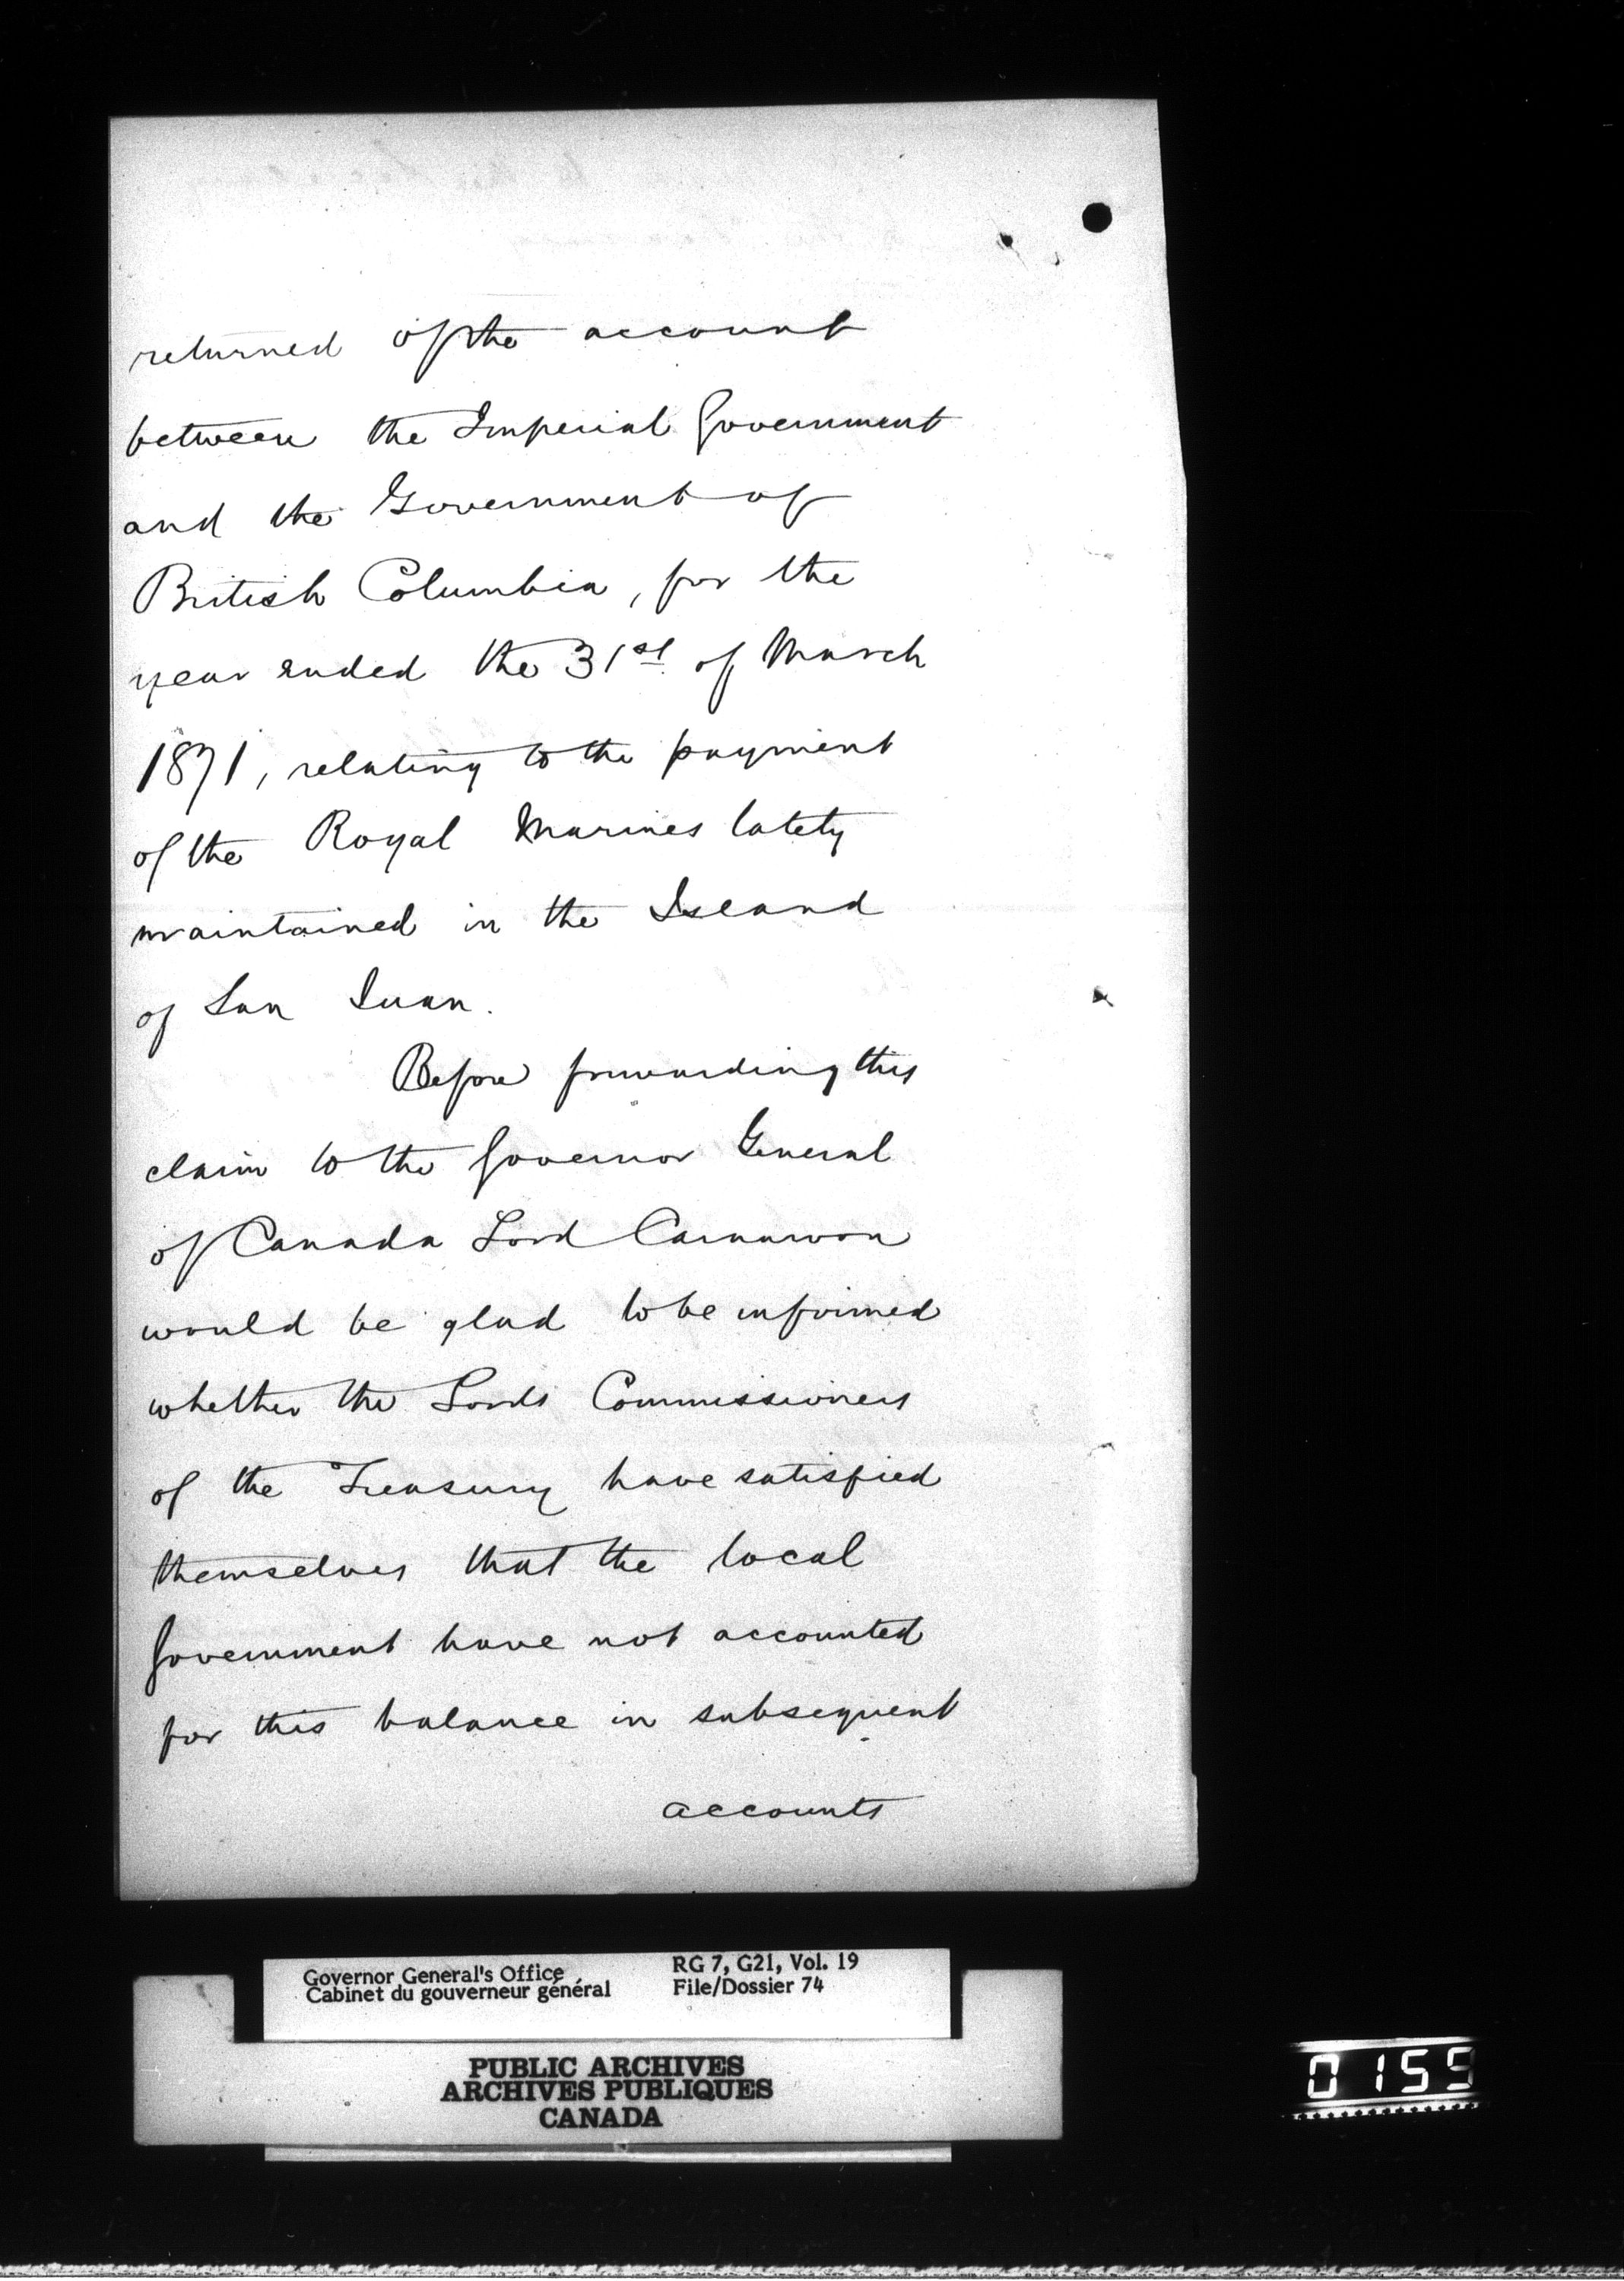 returned of the account
between the Imperial Government
and the Government of
British Columbia, for the
year ended the 31st of March
1871, relating to the payment
of the Royal Marines lately
maintained in the Island
of San Juan.
Before forwarding this
claim to the Governor General
of Canada Lord Carnarvon
would be glad to be informed
whether the Lords Commissioners
of the Treasury have satisfied
themselves that the local
Government have not accounted
for this balance in subsequent
accounts
Governor General's Office
Cabinet du gouverneur général
RG 7, G21, Vol. 19
File/Dossier 74
PUBLIC ARCHIVES
ARCHIVES PUBLIQUES
CANADA
0155